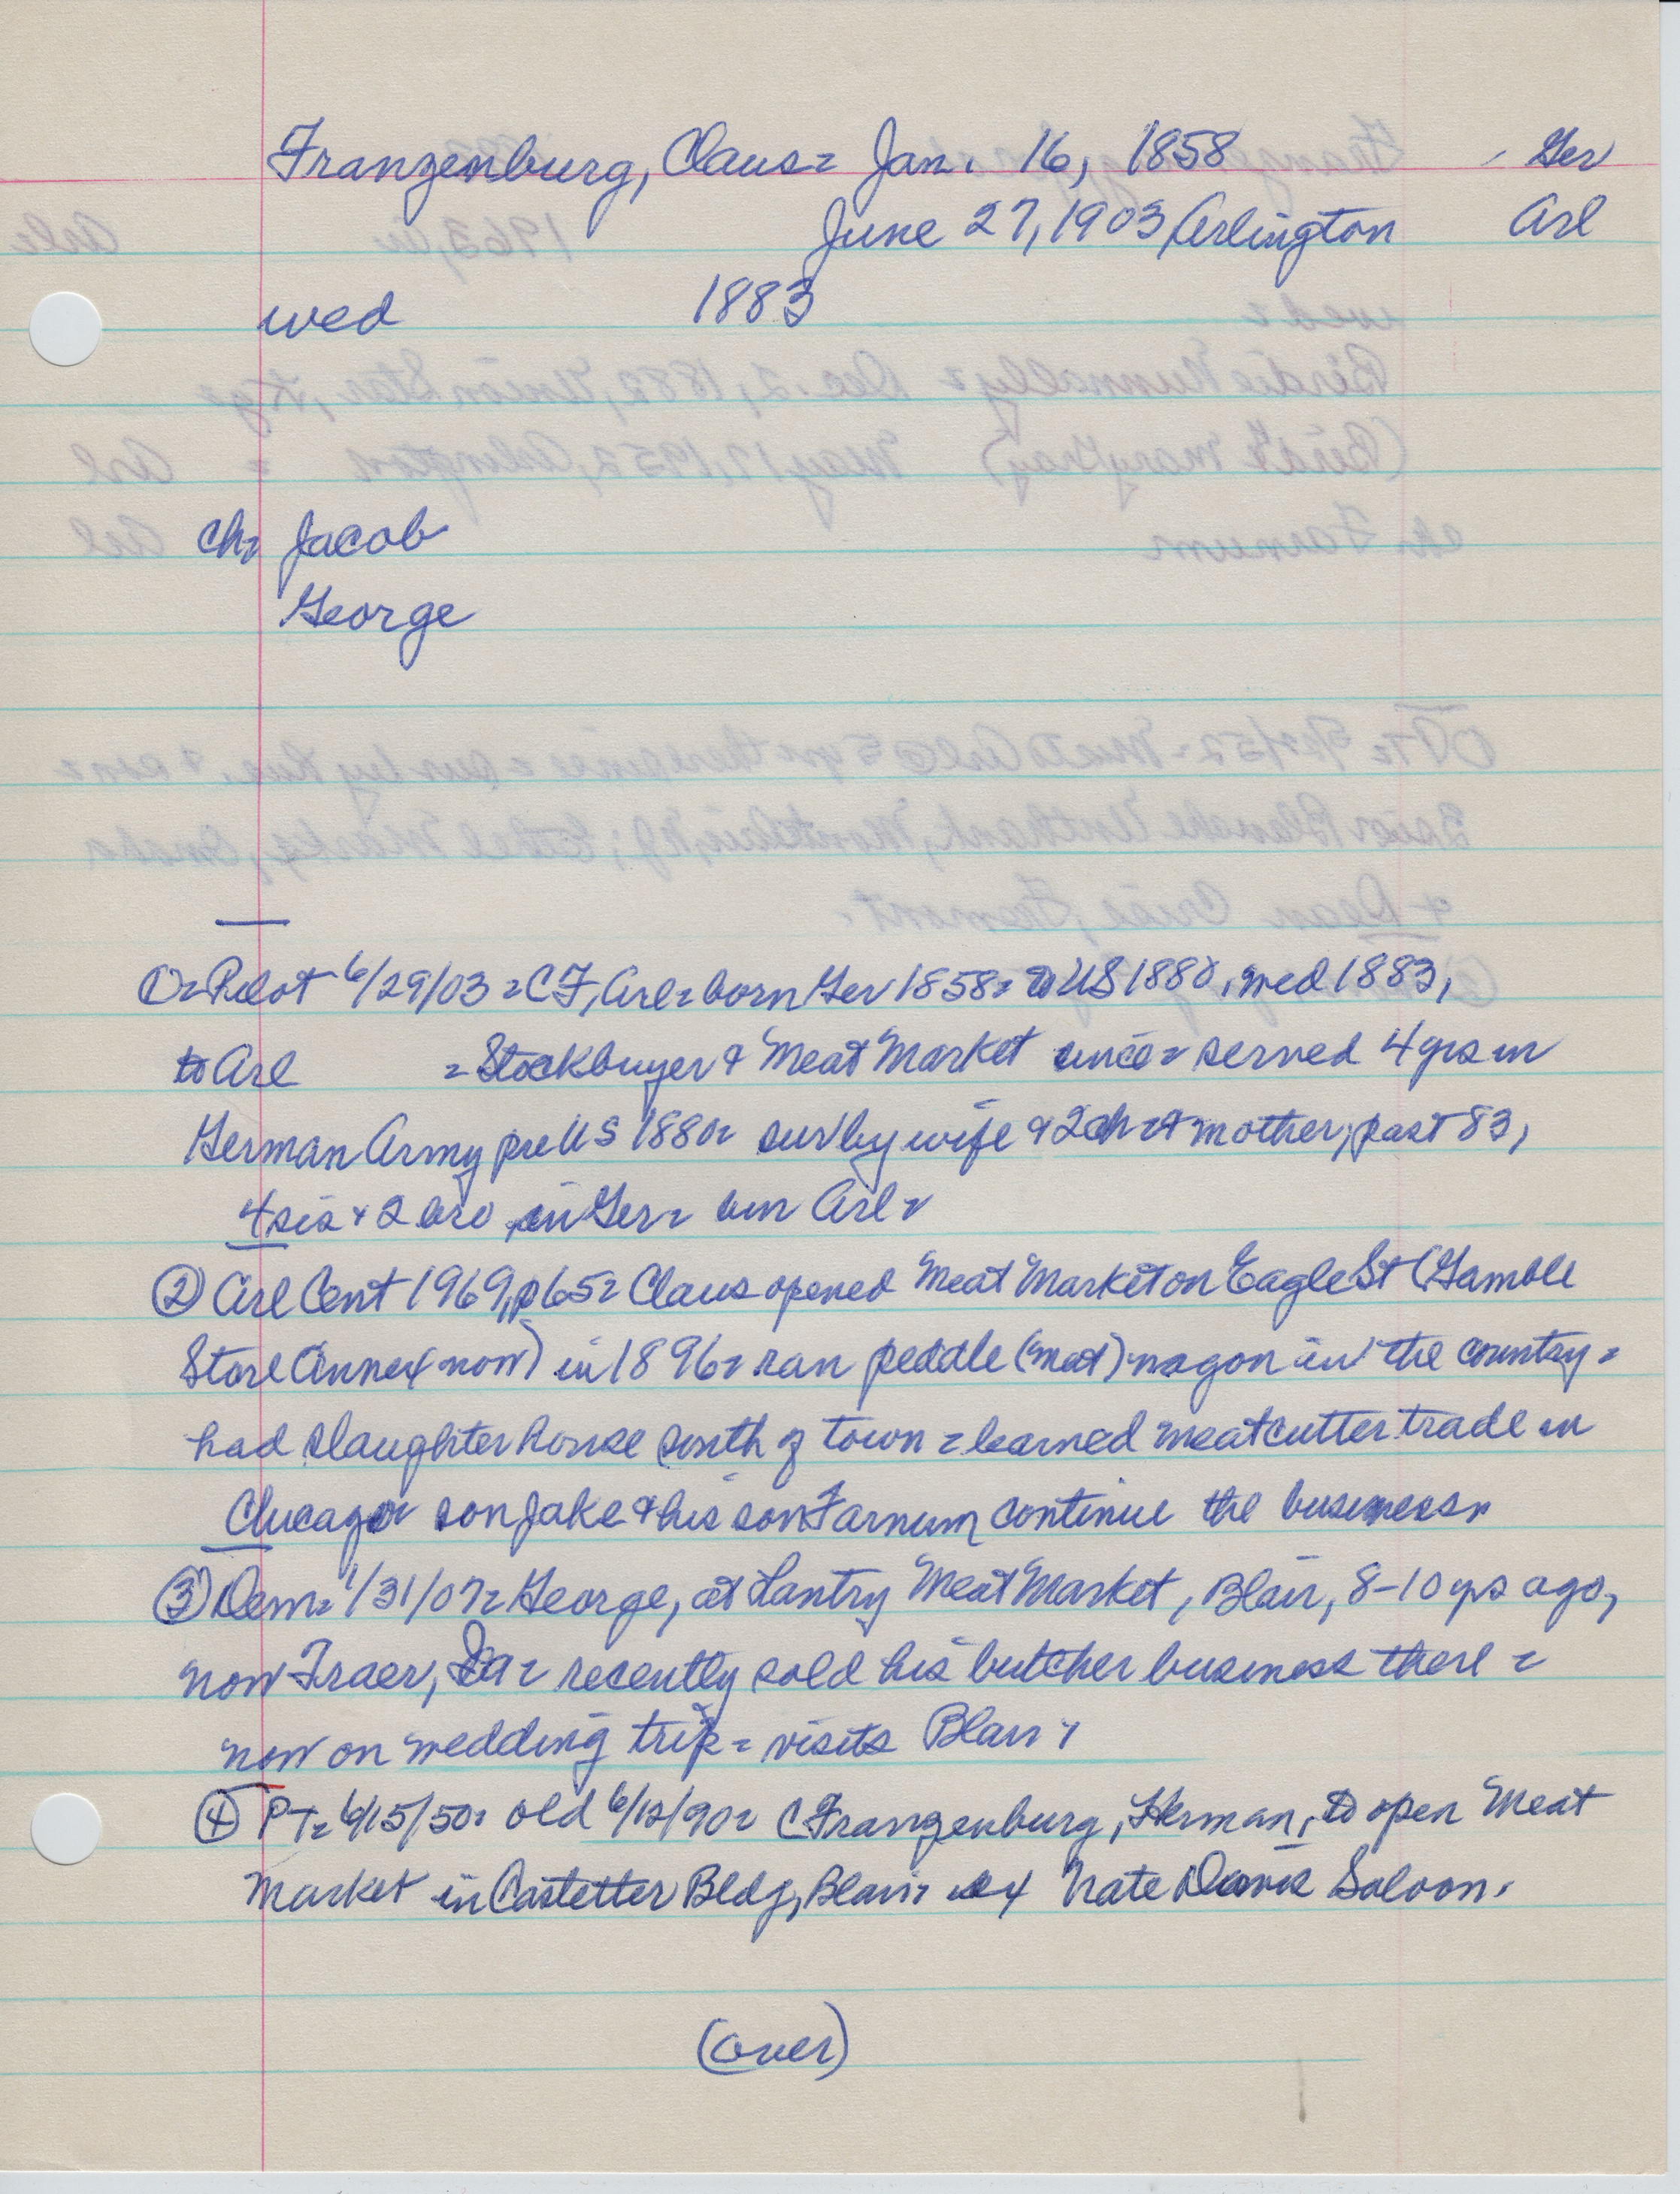 Franzenburg, Claus= Jan. 16, 1858 - Ger
June 27, 1903, Arlington Arl
wed 1883
ch= Jacob
George
①=Pilot 6/29/03=CF, Arl=born Ger 1858= to US 1880, wed 1883,
to Arl =Stockbuyer & Meat Market since= served 4 yrs in
German Army pre US 1880= sur by wife & 2 ch=& mother, past 83,
4 sis & 2 bro in Ger= bur Arl=
② Arl Cent 1969, p65= Claus opened Meat Market on Eagle St (Gamble
Store Annex now) in 1896= ran peddle (meat) wagon in the country=
had slaughter house south of town=learned meatcutter trade in
Chicago= son Jake & his son Farnum continue the business=
③ Dem= 1/31/07= George, at Lantry Meat Market, Blair, 8-10 yrs ago,
now Traer, Ia= recently sold his butcher business there=
now on wedding trip= visits Blair=
④ PT= 6/15/50= old 6/12/90= C Franzenburg, Herman, to open Meat
Market in Castetter Bldg, Blair= ex Nate Davis Saloon.
(over)